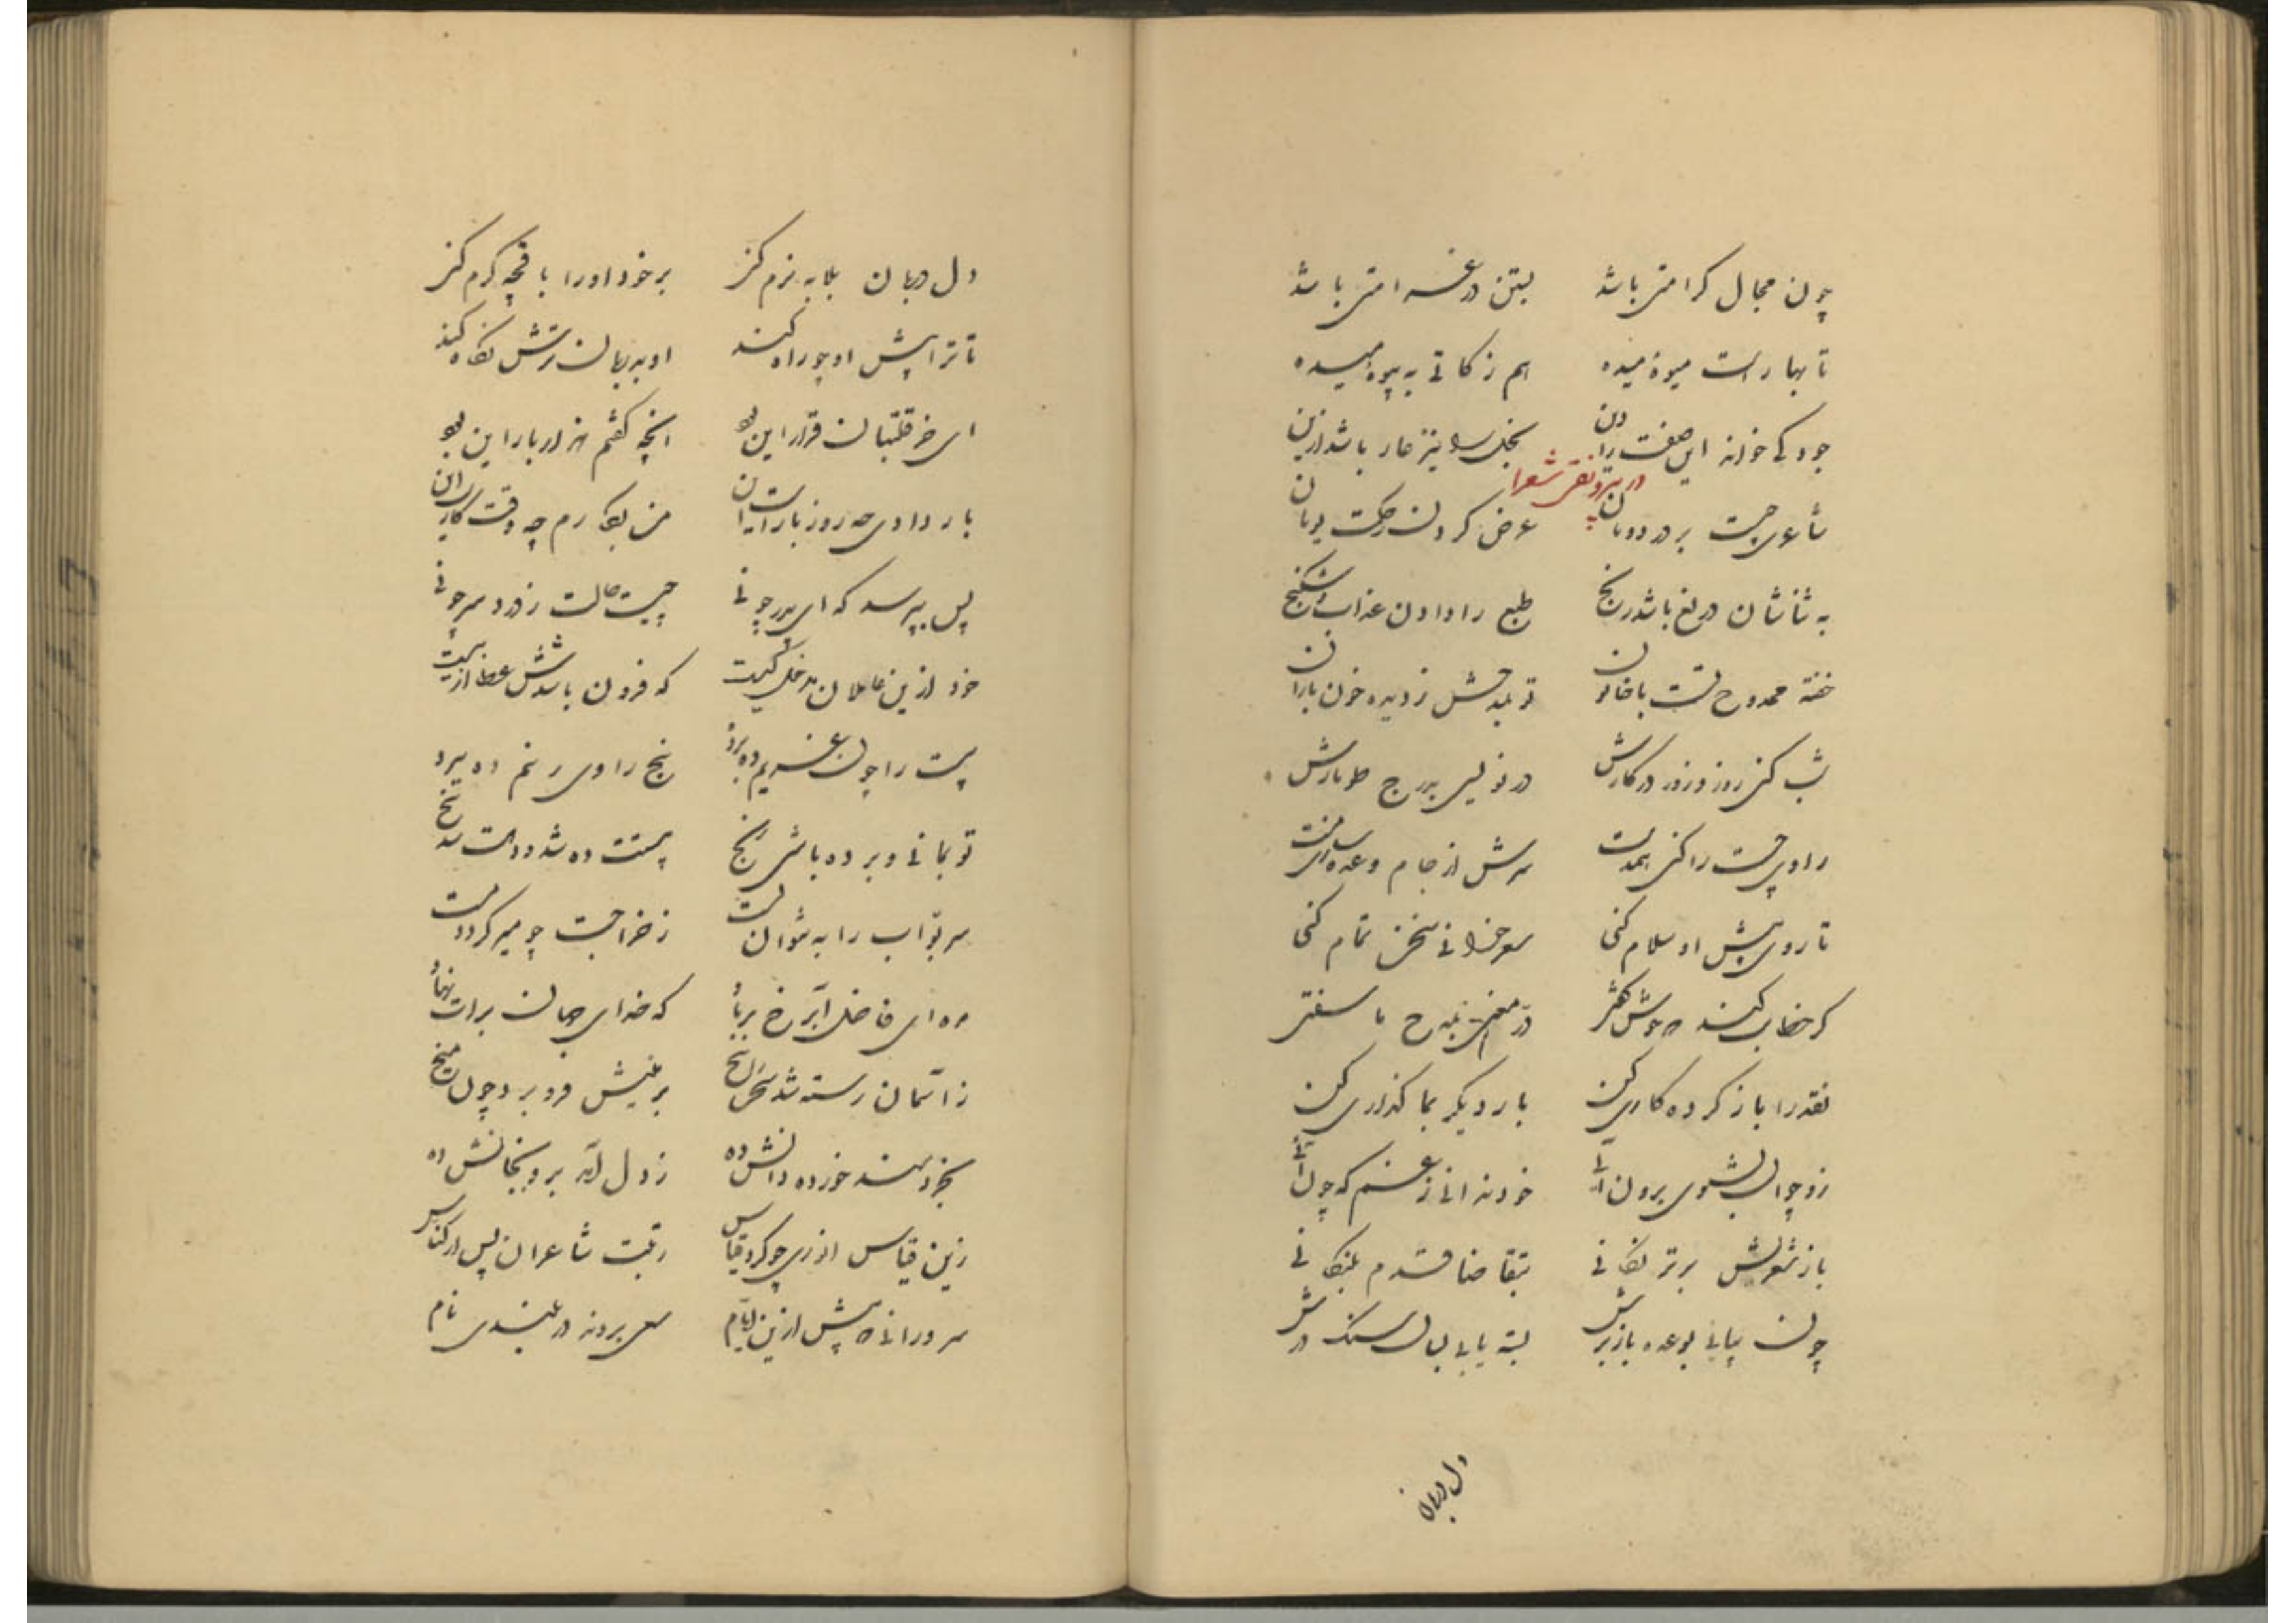 چون مجال کرامتی باشد بستن در غرامتی باشد
تا بهارست میوهٔ میده هم زکاتی به بیوه میده
جود کی خواند این صفت را دین بخل را نیز عار باشد ازین
در پیروی نفس شعرا
شاعری چیست بر در دونان عرض کردن حکمت یونان
به ثناشان دریغ باشد رنج طبع را دادن عذاب و شکنج
خفته ممدوح مست با خاتون تو بمدحش ز دیده خون باران
شب کنی روز و روز در کارش در نویسی بدرج طومارش
راوی چست را کنی همدست سرش از جام وعده سازی مست
تا روی پیش او سلام کنی شعر خوانی سخن تمام کنی
کر خطابی کنند خوش کفتی در معنی بمدح ما سفتی
نقد را باز کرده کاری کن بار دیکر بما کذاری کن
زو چو این بشنوی برون آئی خود ندانی ز غم که چون آئی
باز شعریش برتر نکانی بتقاضا قدم بلنکانی
چون بیابی بوعده بازبرش بسته یابی بسان سنک درش
دل دربان
دل دربان بلابه نرم کنی بر خود او را باقچه کرم کنی
تا ترا پیش او چو راه کنند او بدربان ترش نکاه کند
ای خر قلتبان قرار این بود آنچه کفتم هزار بار این بود
بار دادی چه روز بارست آن من بکارم چه وقت کارست آن
پس بپرسد که ای پدر چونی چیست حالت ز درد سر چونی
خود ازین عاملان مدخل کیست که فزون باشدش عطا از بیست
بیست را چون غریم ده ببرد پنج راوی ر نیم ده ببرد
تو بمانی و برده باشی رنج بیستت ده شد و دهت شد پنج
سر بواب را به نتوان بست ز خر اجست چو میر کردد مست
ده ای فاضل آبرخ برباد که خدای جهان برات نهاد
ز آسمان رسته شد سخن را بیخ بر زمینش فرو بر و چون میخ
بخردمند خورده دانش ده ز دل آمد برو بجانش ده
زین قیاس انوری چو کرد قیاس رتبت شاعران پس از کناس
سرورانی که پیش ازین ایام سعی بردند در بلندی نام